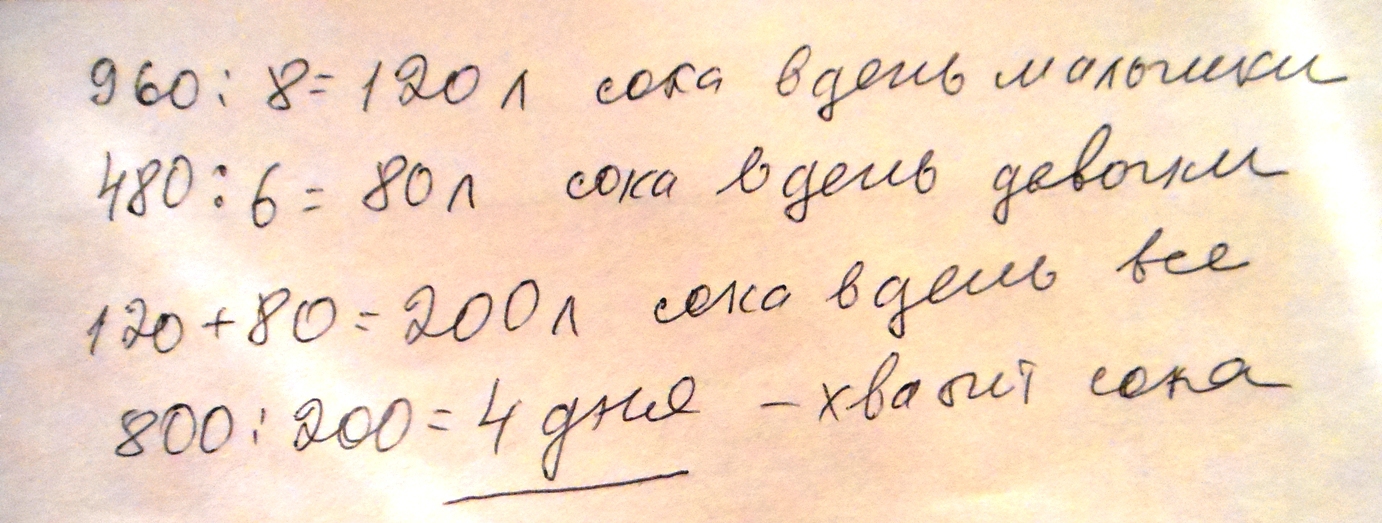 960 : 8 = 120 л сока в день мальчики
480 : 6 = 80 л сока в день девочки
120 + 80 = 200 л сока в день все
800 : 200 = 4 дня - хватит сока